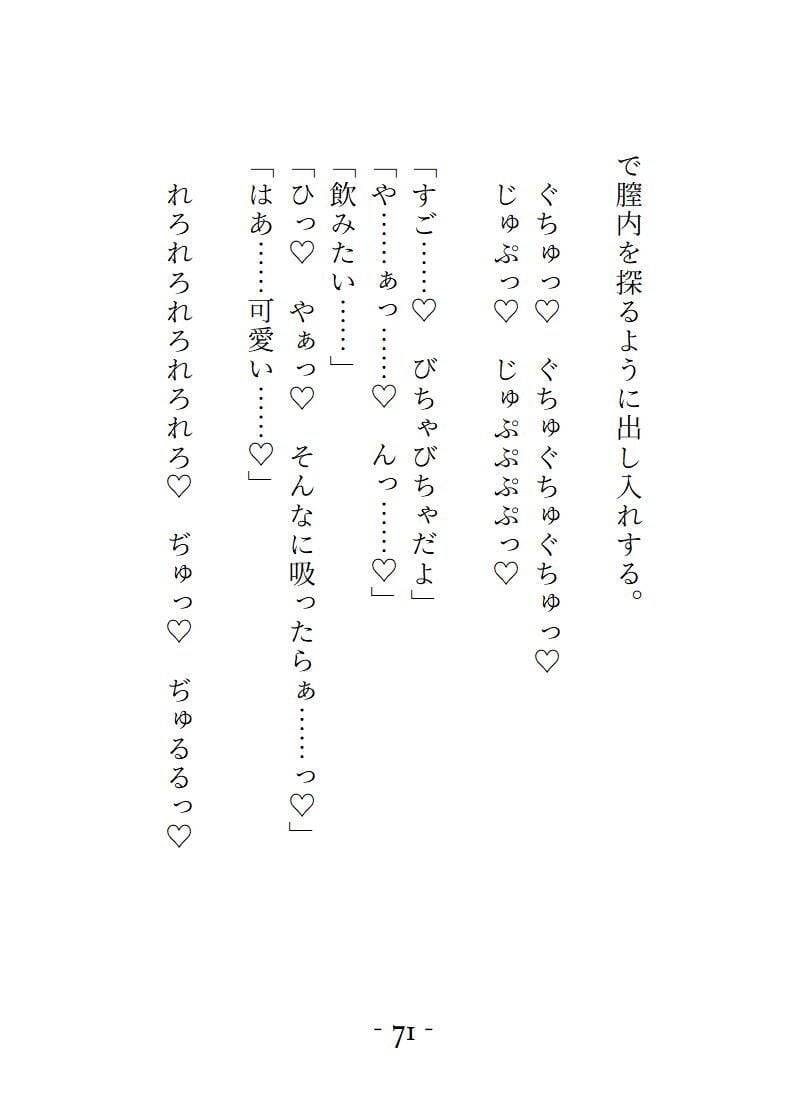 で膣内を探るように出し入れする。
ぐちゅっ♡　ぐちゅぐちゅぐちゅっ♡
じゅぷっ♡　じゅぷぷぷぷっ♡
「すご……♡　びちゃびちゃだよ」
「や……ぁっ……♡　んっ……♡」
「飲みたい……」
「ひっ♡　やぁっ♡　そんなに吸ったらぁ……っ♡」
「はあ……可愛い……♡」
れろれろれろれろれろ♡　ぢゅっ♡　ぢゅるるっ♡
- 71 -